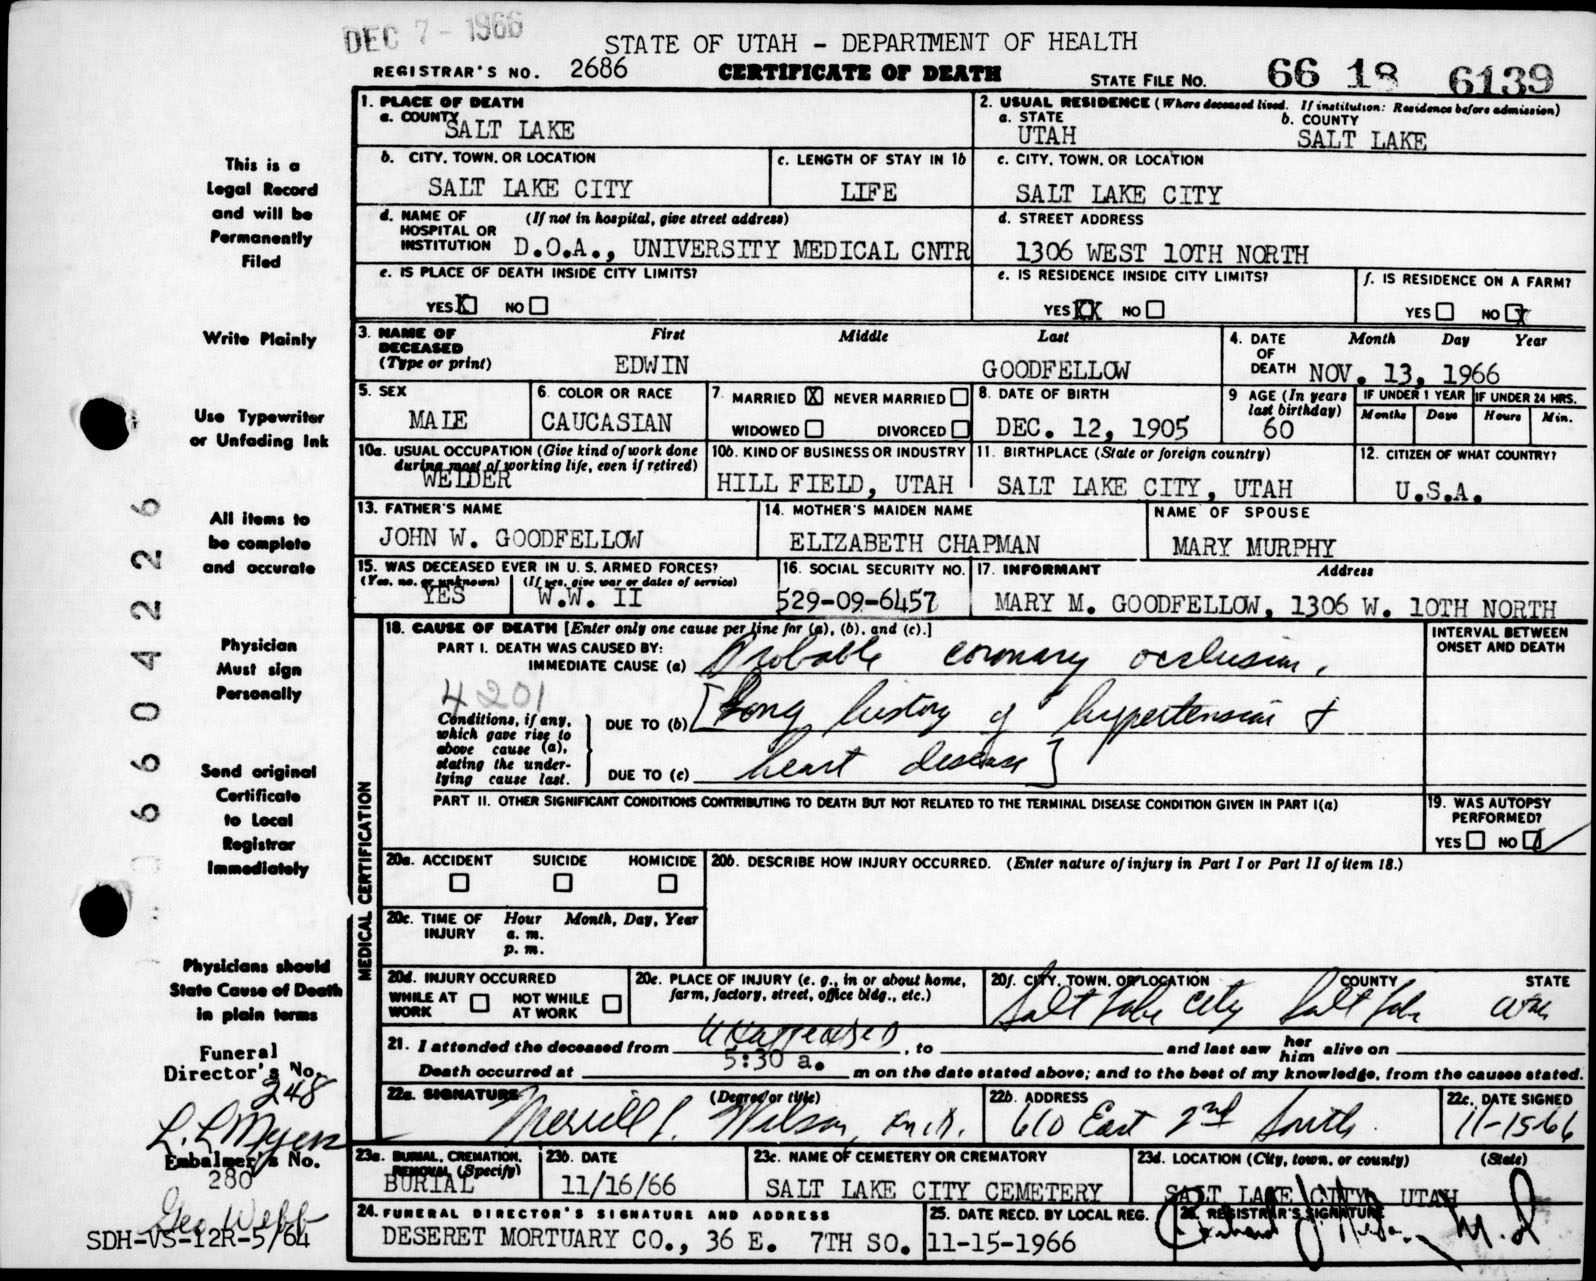 DEC 7 - 1966
STATE OF UTAH - DEPARTMENT OF HEALTH
REGISTRAR'S NO. 2686 CERTIFICATE OF DEATH STATE FILE NO. 66 18 6139
1. PLACE OF DEATH
a. COUNTY SALT LAKE
2. USUAL RESIDENCE (Where deceased lived. If institution: Residence before admission)
a. STATE UTAH b. COUNTY SALT LAKE
b. CITY, TOWN, OR LOCATION SALT LAKE CITY
c. LENGTH OF STAY IN 1b LIFE
c. CITY, TOWN, OR LOCATION SALT LAKE CITY
d. NAME OF HOSPITAL OR INSTITUTION (If not in hospital, give street address) D.O.A., UNIVERSITY MEDICAL CNTR
d. STREET ADDRESS 1306 WEST 10TH NORTH
e. IS PLACE OF DEATH INSIDE CITY LIMITS?
YES X NO
e. IS RESIDENCE INSIDE CITY LIMITS?
YES XX NO
f. IS RESIDENCE ON A FARM?
YES NO X
3. NAME OF DECEASED (Type or print) First Middle Last
EDWIN GOODFELLOW
4. DATE OF DEATH Month Day Year
NOV. 13, 1966
5. SEX MALE
6. COLOR OR RACE CAUCASIAN
7. MARRIED X NEVER MARRIED
WIDOWED DIVORCED
8. DATE OF BIRTH DEC. 12, 1905
9 AGE (In years last birthday) 60
IF UNDER 1 YEAR Months Days
IF UNDER 24 HRS. Hours Min.
10a. USUAL OCCUPATION (Give kind of work done during most of working life, even if retired) WELDER
10b. KIND OF BUSINESS OR INDUSTRY HILL FIELD, UTAH
11. BIRTHPLACE (State or foreign country) SALT LAKE CITY, UTAH
12. CITIZEN OF WHAT COUNTRY? U.S.A.
13. FATHER'S NAME JOHN W. GOODFELLOW
14. MOTHER'S MAIDEN NAME ELIZABETH CHAPMAN
NAME OF SPOUSE MARY MURPHY
15. WAS DECEASED EVER IN U.S. ARMED FORCES?
(Yes, no, or unknown) YES (If yes, give war or dates of service) W.W. II
16. SOCIAL SECURITY NO. 529-09-6457
17. INFORMANT Address
MARY M. GOODFELLOW, 1306 W. 10TH NORTH
MEDICAL CERTIFICATION
18. CAUSE OF DEATH [Enter only one cause per line for (a), (b), and (c).]
INTERVAL BETWEEN ONSET AND DEATH
PART I. DEATH WAS CAUSED BY:
IMMEDIATE CAUSE (a) Probable coronary occlusion.
4201
Conditions, if any, which gave rise to above cause (a), stating the underlying cause last.
DUE TO (b) [Long history of hypertension &
DUE TO (c) heart disease]
PART II. OTHER SIGNIFICANT CONDITIONS CONTRIBUTING TO DEATH BUT NOT RELATED TO THE TERMINAL DISEASE CONDITION GIVEN IN PART I(a)
19. WAS AUTOPSY PERFORMED?
YES NO ✓
20a. ACCIDENT SUICIDE HOMICIDE
20b. DESCRIBE HOW INJURY OCCURRED. (Enter nature of injury in Part I or Part II of item 18.)
20c. TIME OF INJURY Hour a. m. p. m. Month, Day, Year
20d. INJURY OCCURRED
WHILE AT WORK NOT WHILE AT WORK
20e. PLACE OF INJURY (e. g., in or about home, farm, factory, street, office bldg., etc.)
20f. CITY, TOWN, OR LOCATION COUNTY STATE
Salt Lake City Salt Lake Utah
21. I attended the deceased from Unattended, to and last saw her him alive on
Death occurred at 5:30 a. m on the date stated above; and to the best of my knowledge, from the causes stated.
22a. SIGNATURE (Degree or title) Merrill L. Wilson, M.D.
22b. ADDRESS 610 East 2nd South
22c. DATE SIGNED 11-15-66
23a. BURIAL, CREMATION, REMOVAL (Specify) BURIAL
23b. DATE 11/16/66
23c. NAME OF CEMETERY OR CREMATORY SALT LAKE CITY CEMETERY
23d. LOCATION (City, town, or county) (State)
SALT LAKE CITY, UTAH
24. FUNERAL DIRECTOR'S SIGNATURE AND ADDRESS
DESERET MORTUARY CO., 36 E. 7TH SO.
25. DATE RECD. BY LOCAL REG. 11-15-1966
26. REGISTRAR'S SIGNATURE
M.D
This is a
Legal Record
and will be
Permanently
Filed
Write Plainly
Use Typewriter
or Unfading Ink
All items to
be complete
and accurate
Physician
Must sign
Personally
Send original
Certificate
to Local
Registrar
Immediately
Physicians should
State Cause of Death
in plain terms
Funeral
Director's No.
248
L. L Myers
Embalmer's No.
280
Geo Webb
SDH-VS-12R-5/64
6604226